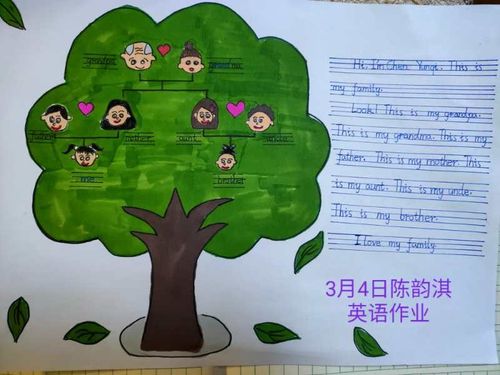 grandpa
grandma
father
mother
aunt
uncle
me
brother
Hi, I'm Chen Yunqi. This is
my family.
Look! This is my grandpa.
This is my grandma. This is my
father. This is my mother. This
is my aunt. This is my uncle.
This is my brother.
I love my family.
3月4日陈韵淇
英语作业